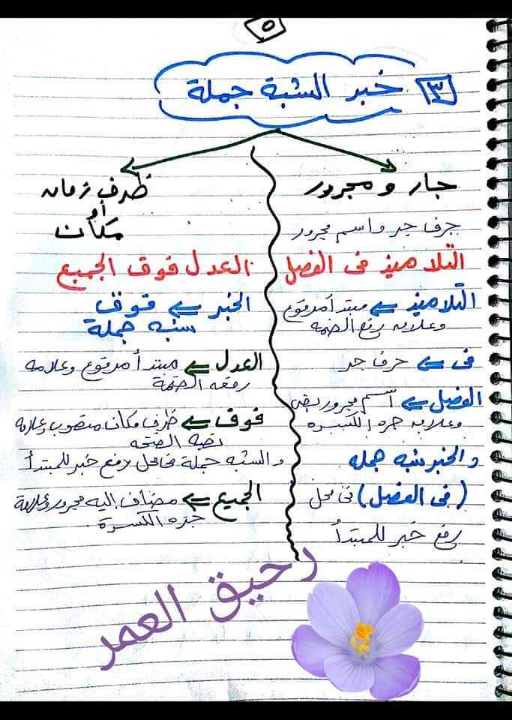 ٥
٣ خبر الشبة جملة
جار و مجرور
حرف جر واسم مجرور
التلاميذ فى الفصل
التلاميذ ⇐ مبتدأ مرفوع
وعلامه رفع الضمه
فى ⇐ حرف جر
الفصل ⇐ اسم مجرور بفى
وعلامه جره الكسره
و الخبر شبه جمله
(فى الفصل) فى محل
رفع خبر للمبتدأ
ظرف زمان
أو
مكان
العدل فوق الجميع
الخبر ⇐ فوق
شبه جملة
العدل ⇐ مبتدأ مرفوع وعلامه
رفعه الضمة
فوق ⇐ ظرف مكان منصوب وعلامه
نصبه الفتحه
و الشبه جملة فى محل رفع خبر للمبتدأ
الجميع ⇐ مضاف إليه مجرور وعلامة
جره الكسرة
رحيق العمر